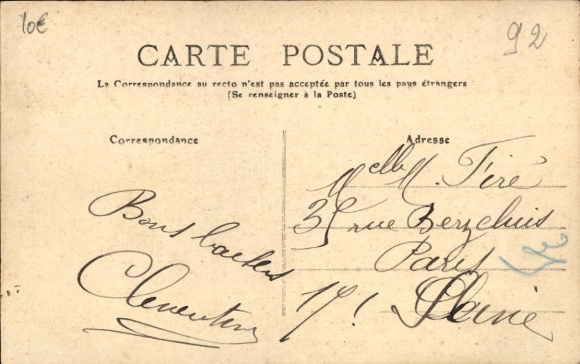 10€
92
CARTE POSTALE
La Correspondance au recto n'est pas acceptée par tous les pays étrangers
(Se renseigner à la Poste)
Correspondance
Adresse
Melle M. Féré
35 rue Berzelius
Paris
17! Seine
Bons baisers
Clementine